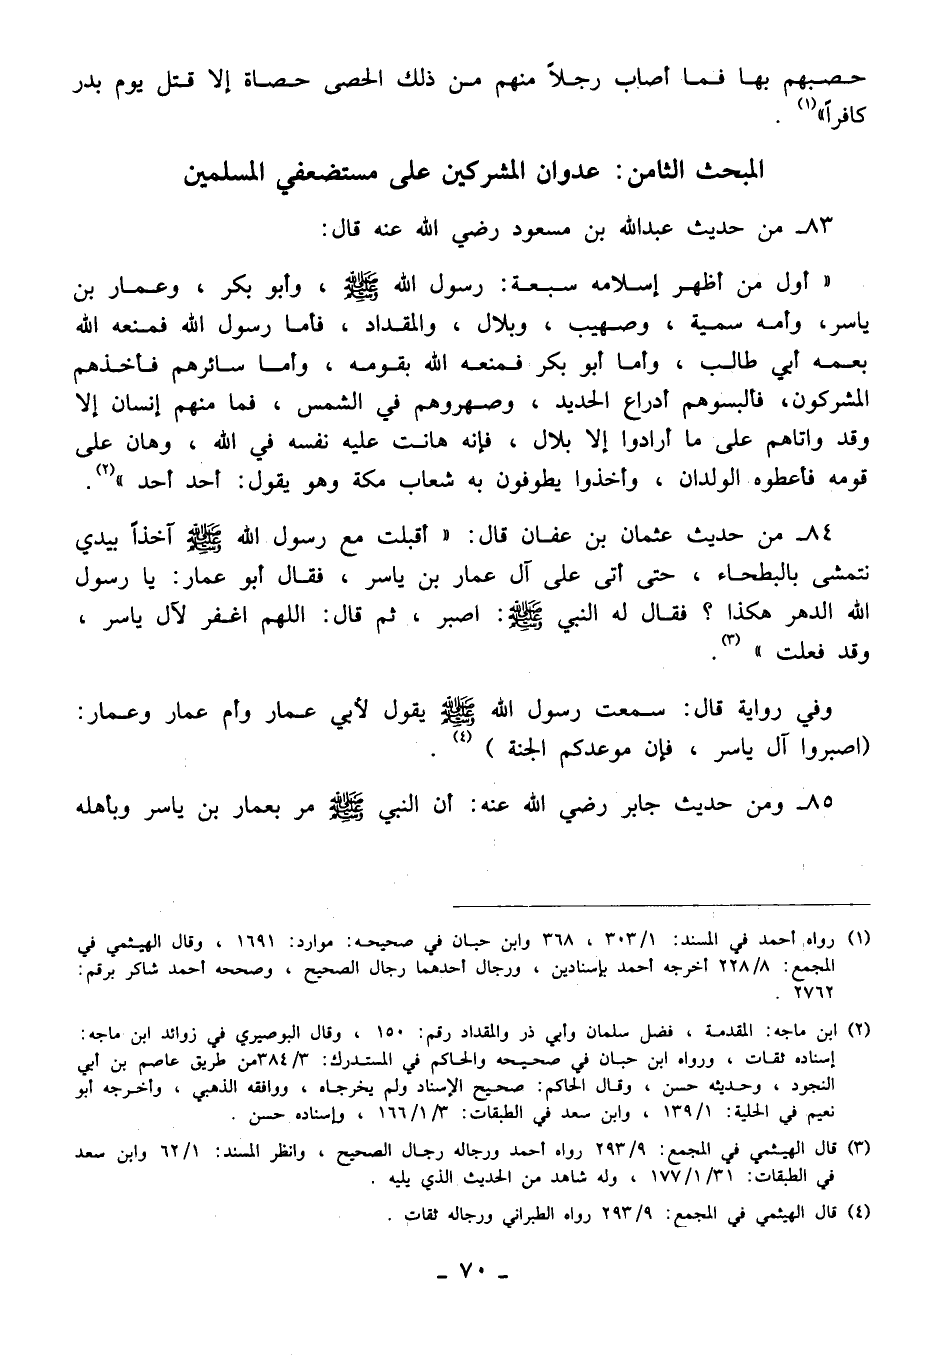 حصبهم بها فما أصاب رجلاً منهم من ذلك الحصى حصاة إلا قتل يوم بدر
كافراً»(١) .
المبحث الثامن: عدوان المشركين على مستضعفي المسلمين
٨٣ـ من حديث عبدالله بن مسعود رضي الله عنه قال:
« أول من أظهر إسلامه سبعة: رسول الله ﷺ ، وأبو بكر ، وعمار بن
ياسر، وأمه سمية ، وصهيب ، وبلال ، والمقداد ، فأما رسول الله فمنعه الله
بعمه أبي طالب ، وأما أبو بكر فمنعه الله بقومه ، وأما سائرهم فأخذهم
المشركون، فألبسوهم أدراع الحديد ، وصهروهم في الشمس ، فما منهم إنسان إلا
وقد واتاهم على ما أرادوا إلا بلال ، فإنه هانت عليه نفسه في الله ، وهان على
قومه فأعطوه الولدان ، وأخذوا يطوفون به شعاب مكة وهو يقول: أحد أحد »(٢).
٨٤ـ من حديث عثمان بن عفان قال: « أقبلت مع رسول الله ﷺ آخذاً بيدي
نتمشى بالبطحاء ، حتى أتى على آل عمار بن ياسر ، فقال أبو عمار: يا رسول
الله الدهر هكذا ؟ فقال له النبي ﷺ: اصبر ، ثم قال: اللهم اغفر لآل ياسر ،
وقد فعلت » (٣).
وفي رواية قال: سمعت رسول الله ﷺ يقول لأبي عمار وأم عمار وعمار:
(اصبروا آل ياسر ، فإن موعدكم الجنة ) (٤) .
٨٥ـ ومن حديث جابر رضي الله عنه: أن النبي ﷺ مر بعمار بن ياسر وبأهله
(١) رواه أحمد في المسند: ٣٠٣/١ ، ٣٦٨ وابن حبان في صحيحه: موارد: ١٦٩١ ، وقال الهيثمي في
المجمع: ٢٢٨/٨ أخرجه أحمد بإسنادين ، ورجال أحدهما رجال الصحيح ، وصححه أحمد شاكر برقم:
٢٧٦٢ .
(٢) ابن ماجه: المقدمة ، فضل سلمان وأبي ذر والمقداد رقم: ١٥٠ ، وقال البوصيري في زوائد ابن ماجه:
إسناده ثقات ، ورواه ابن حبان في صحيحه والحاكم في المستدرك: ٣٨٤/٣من طريق عاصم بن أبي
النجود ، وحديثه حسن ، وقال الحاكم: صحيح الإسناد ولم يخرجاه ، ووافقه الذهبي ، وأخرجه أبو
نعيم في الحلية: ١٣٩/١ ، وابن سعد في الطبقات: ١٦٦/١/٣ ، وإسناده حسن .
(٣) قال الهيثمي في المجمع: ٢٩٣/٩ رواه أحمد ورجاله رجال الصحيح ، وانظر المسند: ٦٢/١ وابن سعد
في الطبقات: ١٧٧/١/٣١ ، وله شاهد من الحديث الذي يليه .
(٤) قال الهيثمي في المجمع: ٢٩٣/٩ رواه الطبراني ورجاله ثقات .
ـ ٧٠ ـ